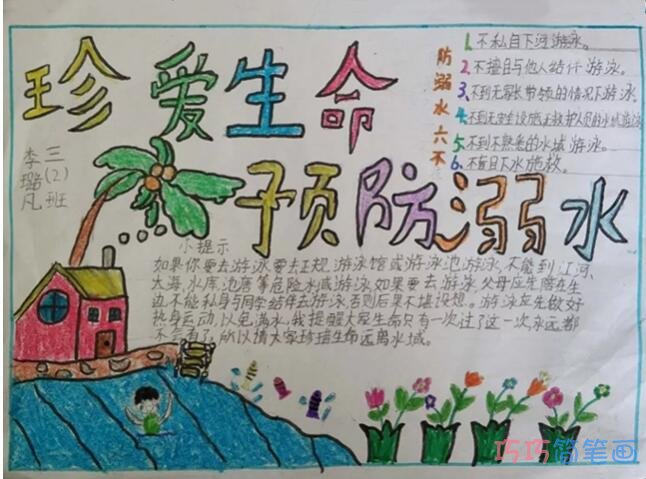 珍爱生命
预防溺水
三(2)班
李璐凡
防溺水六不
1.不私自下河游泳。
2.不擅自与他人结伴游泳。
3.不到无家长带领的情况下游泳
4.不到无安全设施无救护人员的水域游泳
5.不到不熟悉的水域游泳。
6.不盲目下水施救。
小提示
如果你要去游泳要去正规游泳馆或游泳池游泳,不能到江河、
大海,水库,池塘等危险水域游泳如果要去游泳父母应坐陪在生
边不能私身与同学结伴去游泳,否则后果不堪设想。游泳应先做好
热身运动,以免满水,我提醒大家生命只有一次过了这一次,永远都
不会有了,所以请大家珍惜生命远离水域。
巧巧简笔画